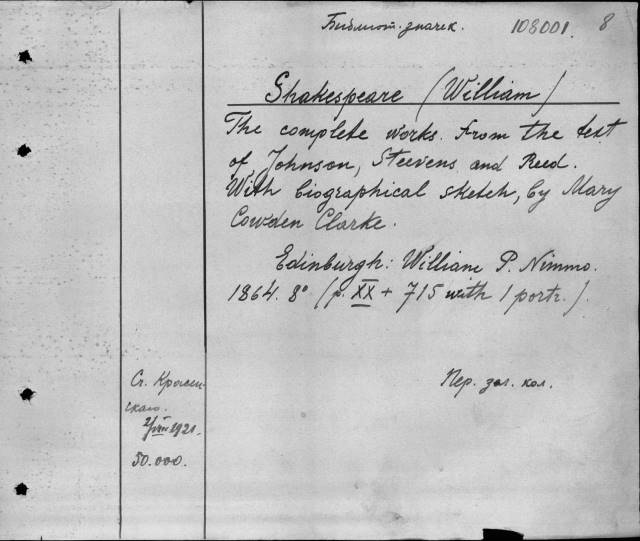 Библиот. значек. 108001. 8
Shakespeare (William)
The complete works. From the text
of Johnson, Steevens and Reed.
With biographical sketch, by Mary
Cowden Clarke.
Edinburgh: William P. Nimmo.
1864. 8° (p. XX + 715 with 1 portr.).
Пер. зол. кол.
Ст.
2/VIII 1921.
50.000.